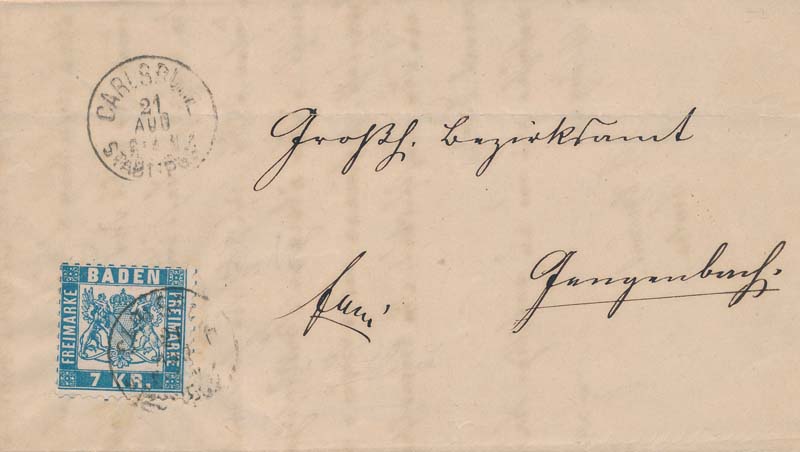 CARLSRUHE
21
AUG
STADTPOST
Großh. Bezirksamt
Gengenbach.
BADEN
FREIMARKE
FREIMARKE
7 KR.